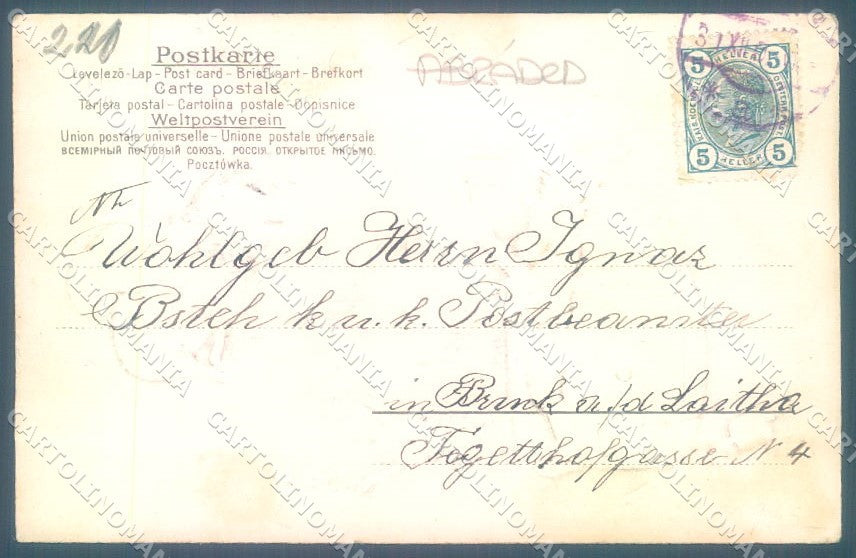 2,20
Postkarte
Levelező-Lap - Post card - Briefkaart - Brefkort
Carte postale
Tarjeta postal - Cartolina postale - Dopisnice
Weltpostverein
Union postale universelle - Unione postale universale
ВСЕМІРНЫЙ ПОЧТОВЫЙ СОЮЗЪ. РОССІЯ. ОТКРЫТОЕ ПИСЬМО.
Pocztówka.
ABRADED
5 5
5 HELLER 5
Wohlgeb Herrn Ignaz
Bsteh k. u. k. Postbeamter
in Bruck a/d Laitha
Tegetthofgasse N 4
CARTOLINOMANIA